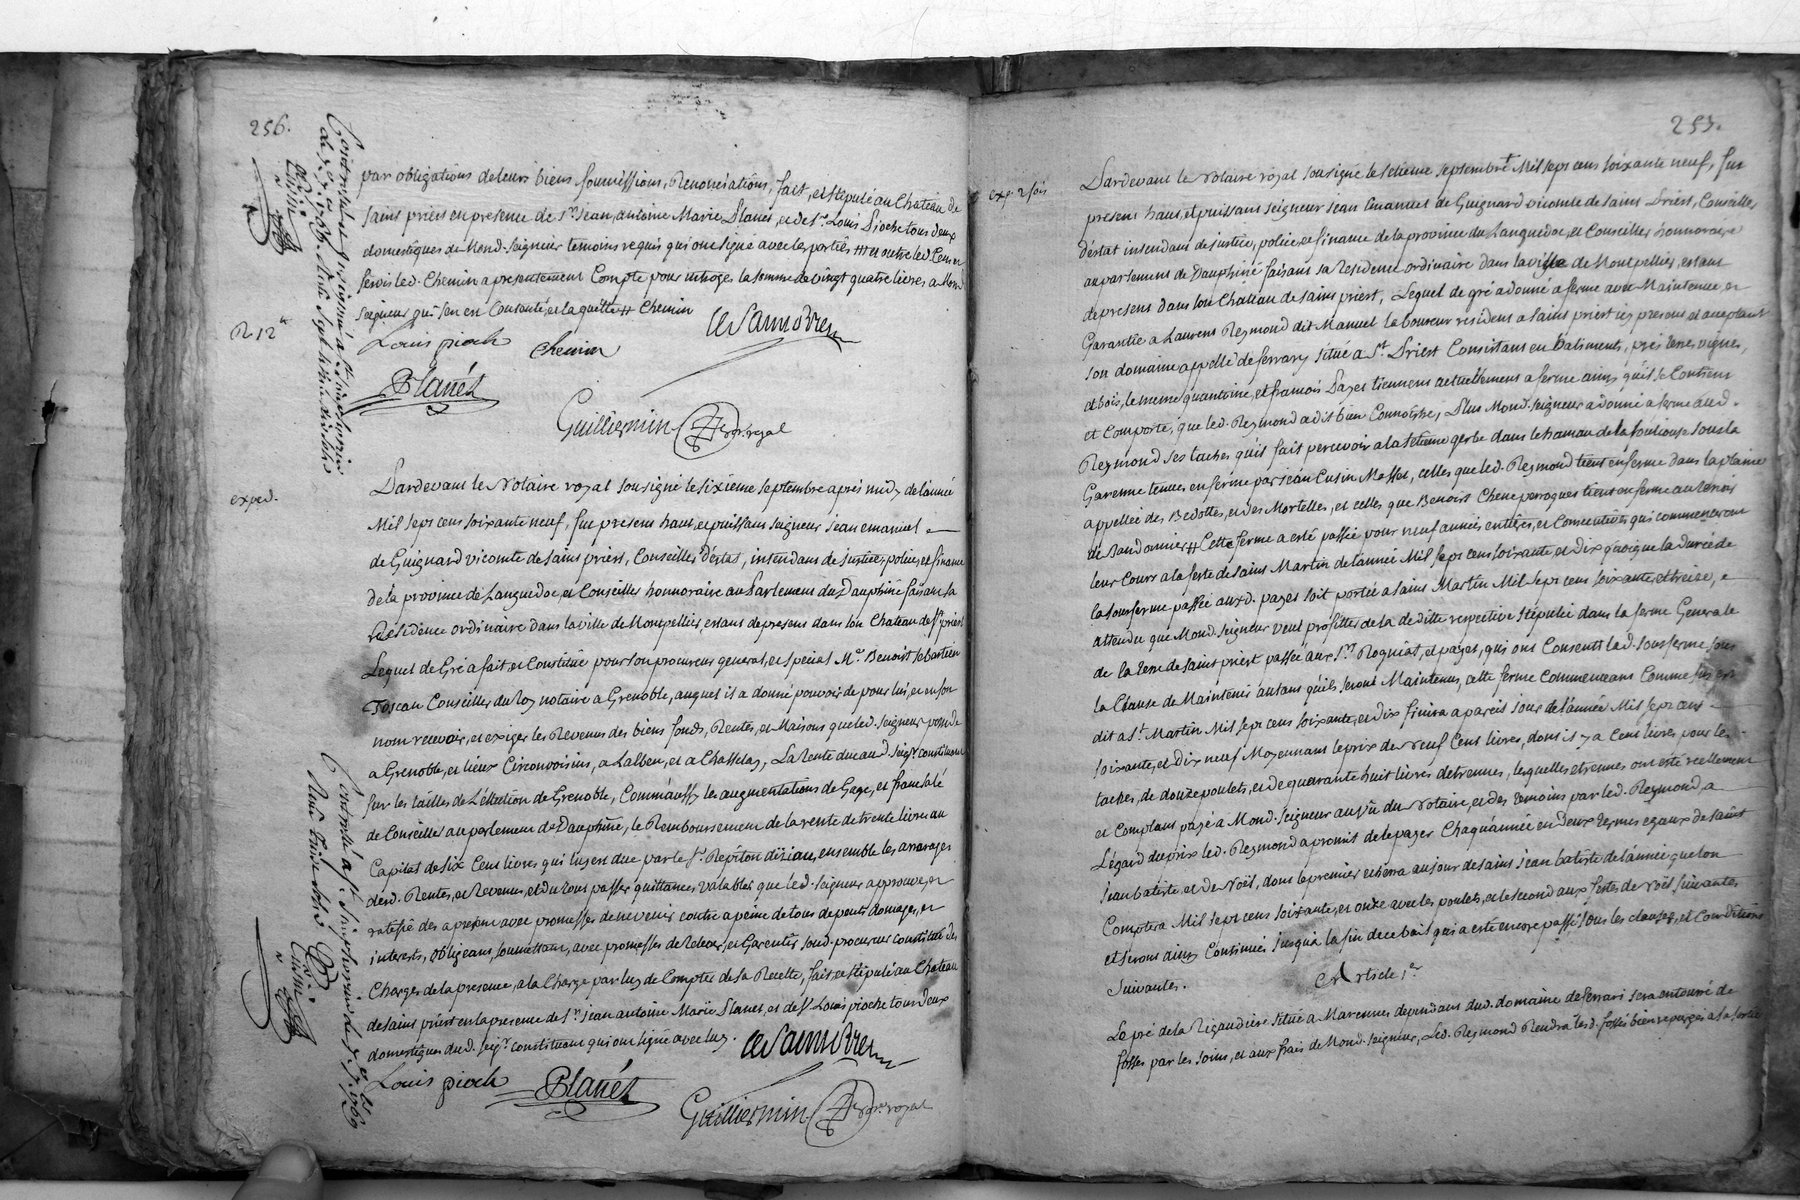 256.
par obligations de leurs biens soumissions, Renonciations, fait, et stipulé au Chateau de
saint priest en presence de Sr. Jean, antoine Marie Planet, et de Sr. Louis Pioche tous deux
domestiques de Mond. Seigneur temoins requis qui ont signé avec les parties ## et outre led. Cens et
servis led. Chemin a presentement Compté pour introge la somme de vingt quatre livres a Mond.
seigneur qui s'en est Contenté, et l'a quitté ## Chemin
R 12
Louis pioch
Chemin
Planet
Guilliermin
Not. royal
exped.
Pardevant le Notaire royal soussigné le sixieme septembre après midy de l'année
Mil sept cent soixante neuf, fut present haut, et puissant seigneur jean emanuel
de Guignard vicomte de saint priest, Conseiller d'estat, intendant de justice, police, et finance
de la province de Languedoc, et Conseiller honnoraire au Parlement du Dauphiné faisant sa
Résidence ordinaire dans la ville de Montpellier, estant de present dans son Chateau de St. priest
Lequel de Gré a fait et Constitué pour son procureur general, et special Me. Benoist sebastien
Toscan Conseiller du Roy notaire a Grenoble, auquel il a donné pouvoir de pour lui, et en son
nom recevoir, et exiger les Revenus des biens fonds, Rentes, et Maisons que led. seigneur possede
a Grenoble, et lieux Circonvoisins, a Lalben, et a Chasselay, La Rente due aud. Seigr. constituant
sur les tailles de L'election de Grenoble, Comm'aussy les augmentations de Gage, et franc salé
de Conseiller au parlement de Dauphiné, le Remboursement de la rente de trente livres au
Capital de six Cent livres qui luy est due par le Sr. Repiton ensemble les arrerages
desd. Rentes, et Revenus, et du tout passer quittances valables que led. seigneur approuve, et
ratifie des a present avec promesses de n'y venir contre a peine de tous depents domages, et
interests, obligeant, soumettant, avec promesses de Relever, et Garentir sond. procureur constitué des
Charges de la presente, a la Charge par luy de Compter de sa Recette, fait et stipulé au Chateau
de saint priest en la presence de Sr. jean antoine Marie Planet, et de Sr. Louis pioche tous deux
domestiques dud. seigr. constituant qui ont signé avec luy.
Louis pioch
Planet
Guilliermin
Not. royal
exp. 2 fois
Pardevant le Notaire royal soussigné le septembre Mil sept cent soixante neuf, fut
present haut, et puissant seigneur jean Emanuel de Guignard vicomte de saint Priest, Conseiller
d'estat intendant de justice, police, et finance de la province du Languedoc, et Conseiller honnoraire
au parlement de Dauphiné faisant sa Residence ordinaire dans la ville de Montpellier, estant
de present dans son Chateau de saint priest, Lequel de gré a donné a ferme avec Maintenue, et
Garantie a Laurent Reymond dit Manuel laboureur resident a saint priest icy present et acceptant
son domaine appellé de ferrary situé a St. Priest Consistant en batiments, prés terres, vignes,
et bois, le meme qu'antoine, et francois Payet tiennent actuellement a ferme ainsy qu'il se Contient
et Comporte, que led. Reymond a dit bien Connoitre, Plus Mond. seigneur a donné a ferme aud.
Reymond ses taches qu'il fait percevoir a la gerbe dans le hameau de la fouliouse sous la
Garenne tenues en ferme par jean Cusin Masset, celles que led. Reymond tient en ferme dans la plaine
appellée des Bedottes, et des Mortelles, et celles que Benoist Chene perroques tient en ferme au
de Randonnier ## Cette ferme a esté passée pour neuf années entieres, et Consecutives qui commenceront
leur Cours a la feste de saint Martin de l'année Mil sept cent soixante, et dix quoique la durée de
la sousferme passée auxd. payets soit portée a saint Martin Mil sept cent soixante, et treize,
attendu que Mond. seigneur veut profitter de la deditte respective stipulée dans la ferme Generale
de la terre de saint priest passée aux Srs. Rogniat, et payet, qui ont Consenti lad. sousferme sous
la Clause de Maintenir autant qu'ils seront Maintenus, cette ferme Commencant Comme sus est
dit a St. Martin Mil sept cent soixante, et dix finira a pareil jour de l'année Mil sept cent
soixante, et dix neuf Moyennant le prix de Neuf Cent livres, dont il y a Cent livres pour les
taches, de douze poulets, et de quarante huit livres d'etrennes, lesquelles etrennes ont esté reellement
et Comptant payé a Mond. Seigneur au vû du Notaire, et des temoins par led. Reymond, a
L'égard du prix led. Reymond a promis de le payer Chaqu'année en deux termes egaux de saint
jean batiste, et de Noël, dont le premier echerra au jour de saint jean batiste de l'année que l'on
Comptera Mil sept cent soixante, et onze avec les poulets, et le second aux festes de Noël suivantes
et seront ainsy Continués jusqu'à la fin de ce bail qui a esté encore passé sous les clauses, et Conditions
suivantes.
Article 1er.
Le pré de la Rigaudiere situé a Marennes dependant dud. domaine de ferrari sera entouré de
fossés par les soins, et aux frais de Mond. seigneur, Led. Reymond Rendra lesd. fossés bien repurgés a sa sortie